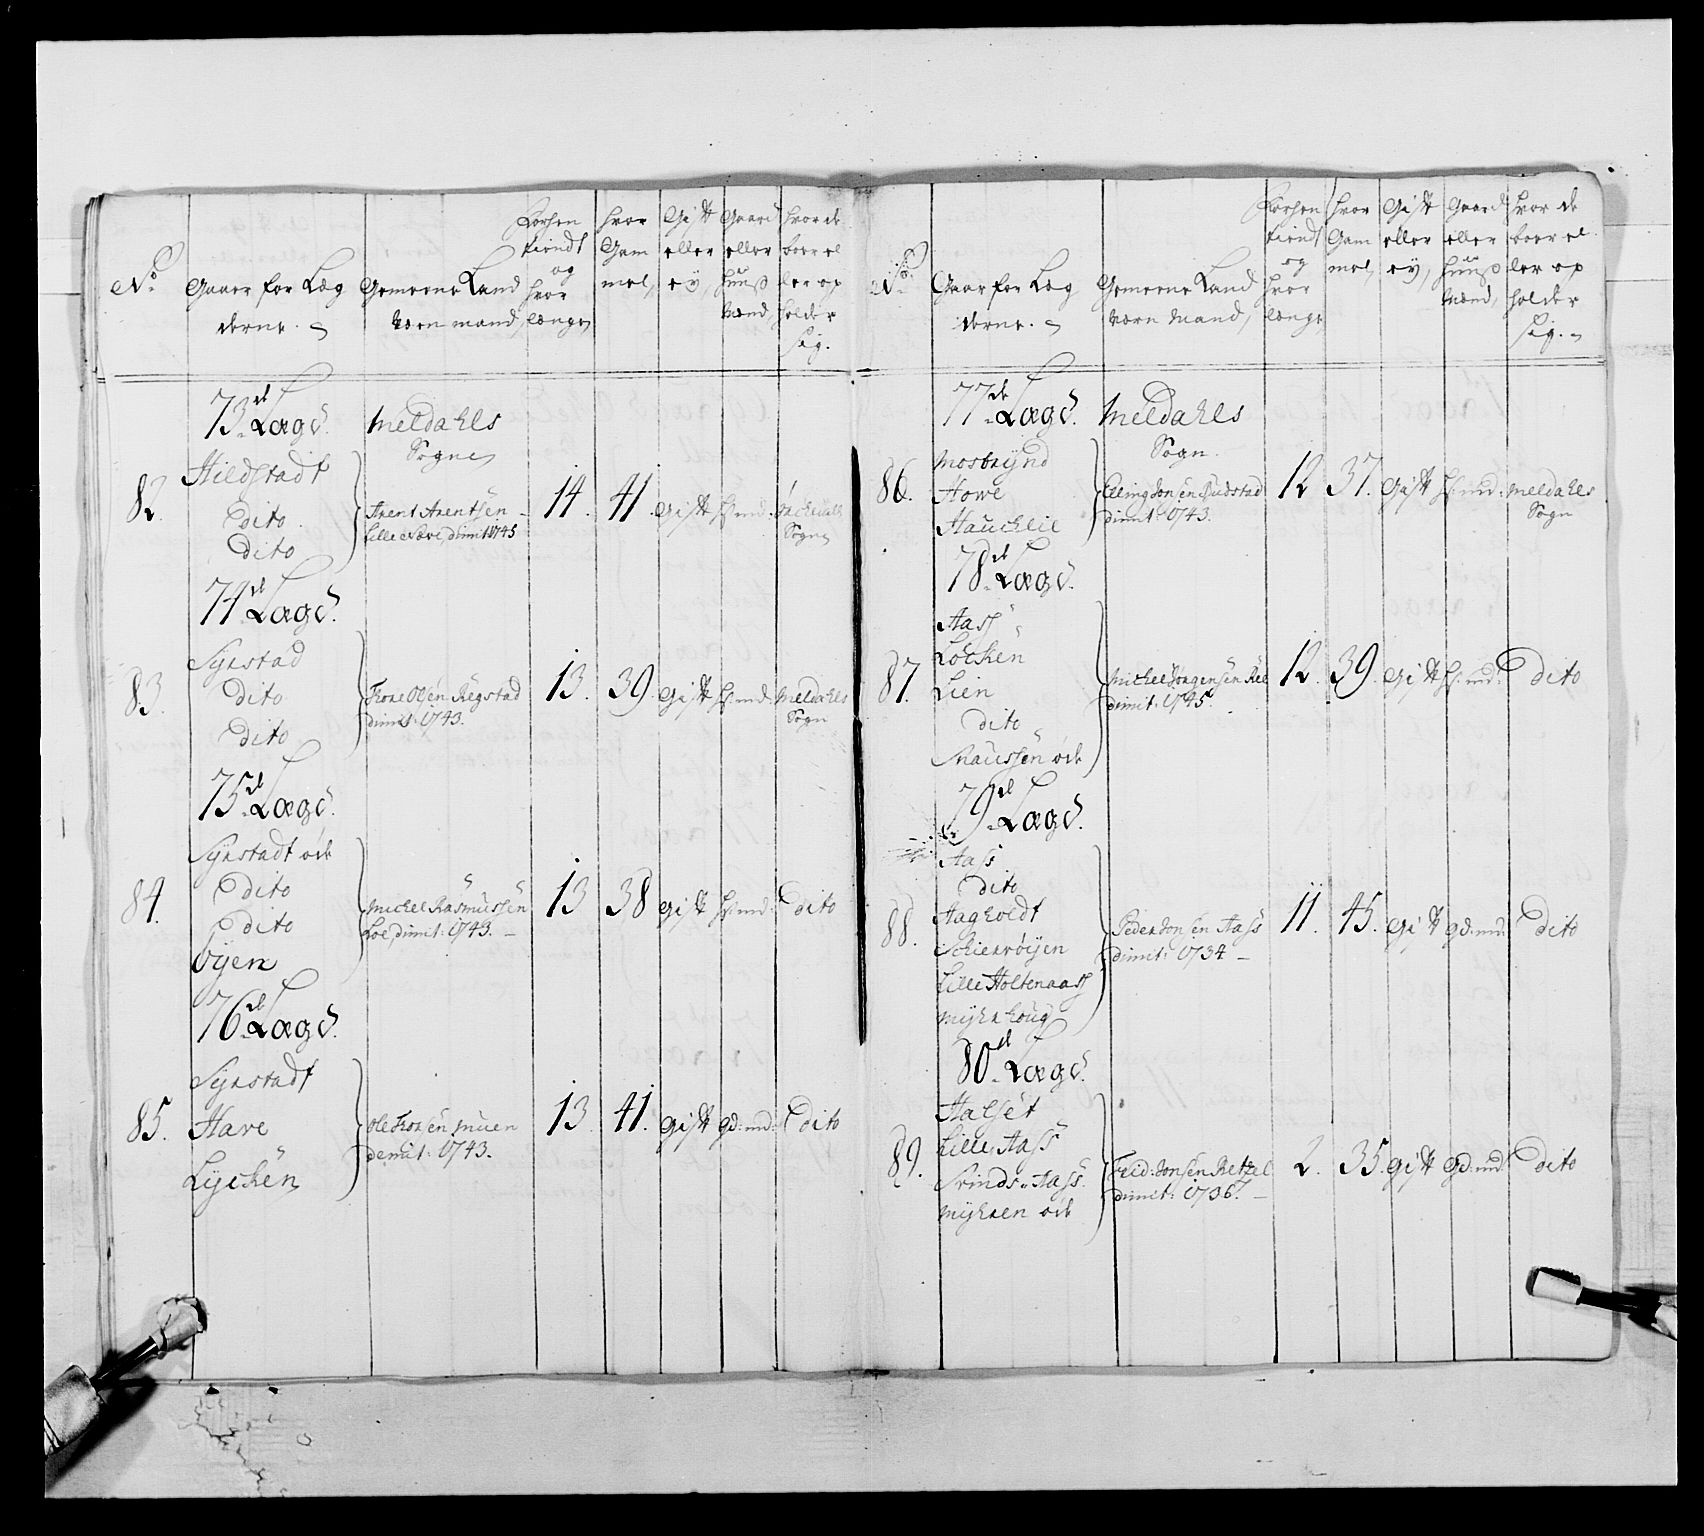 No
Gaarer for Læg
derne.
Gemeene Land
Værn mand,
Forhen
tiendt
og
hvor
længe
hvor
Gam
mel,
Gift
eller
ey,
Gaard
eller
Huus
Mænd,
hvor de
boer el
ler op
holder
sig.
73de Lægd.
Meldahls
Sogn
82.
Hildstadt
Dito
Dito
Arent Arentsen
Lille Næve, dimit: 1745
14.
41.
Gift
Hs: md:
Sogn
74de Lægd.
83.
Syrstad
Dito
Dito
Tore Olsen Regstad
dimit: 1743.
13.
39.
Gift
Hs: md:
Meldahls
Sogn
75de Lægd.
84.
Syrstadt øde
Dito
Dito
Øyen
Michel Rasmussen
Loe, dimit: 1743.
13
38
Gift
Hs: md:
Dito
76de Lægd.
85.
Syrstadt
Hare
Lychen
Ole Toresen Muen
demit: 1743.
13.
41.
Gift
gd: md:
Dito
No
Gaar for Læg
derne.
Gemeene Land
Værn Mand,
Forhen
tiendt
og
hvor
længe
hvor
Gam
mel,
Gift
eller
ey,
Gaard
eller
Huus
Mænd,
hvor de
boer el
ler op
holder
sig.
77de Lægd.
Meldahls
Sogn.
86.
Mosbrynd
Howe
Hauchlie
Elling Jonsen Rudstad
dimit: 1743.
12
37.
Gift
Hs: md:
Meldahls
Sogn
78de Lægd.
87.
Aass
Løchen
Lien
Dito
Snaussen øde
Michel Jørgensen Rel
dimit: 1745.
12.
39.
Gift
Hs: md:
Dito
79de Lægd.
88.
Aass
Dito
Aagholdt
Schierrøyen
Lille Holtenaass
Myhrhoug
Peder Jonsen Aass
dimit: 1734
11.
45.
Gift
gd: md:
Dito
80de Lægd.
89.
Halset
Lille Aass
Svinds-Aass
Myhren øde
Frid: Jonsen Retzel
dimit: 1736.
2.
35.
Gift
gd: md:
Dito